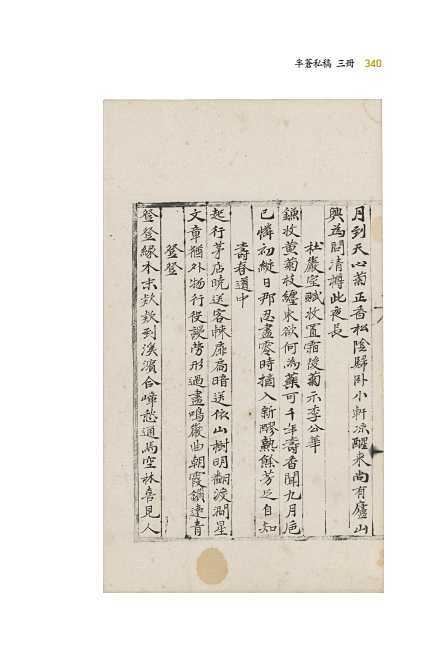 半蒼私稿 三冊 340
月到天心菊正香松陰歸臥小軒凉醒來尚有廬山
興為問清樽此夜長
杜巖室賦收置霜後菊示李公華
鎌收黄菊枝纏來欲何為藥可千年濤香聞九月巵
已憐初綻日那忍盡零時摘入新醪熟餘芳足自知
壽春道中
起行茅店晓送客悚扉高暗送依山樹明翻渡澗星
文章猶外物行役謾勞形過盡鳴巖曲朝霞鎖連青
登登
登登緣木末欵欵到溪濱合嶂愁通馬空林喜見人